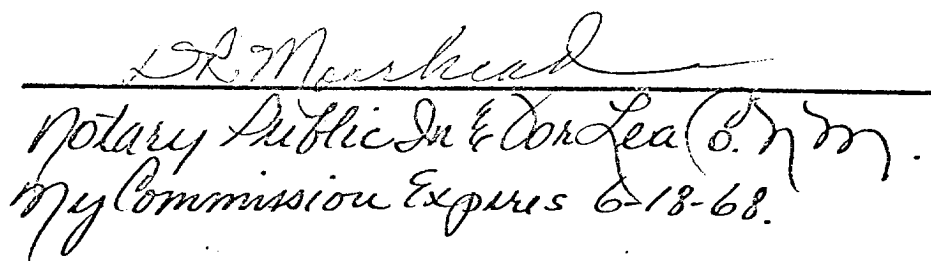 D R Muirhead
Notary Public In & For Lea Co. N M.
My Commission Expires 6-18-68.